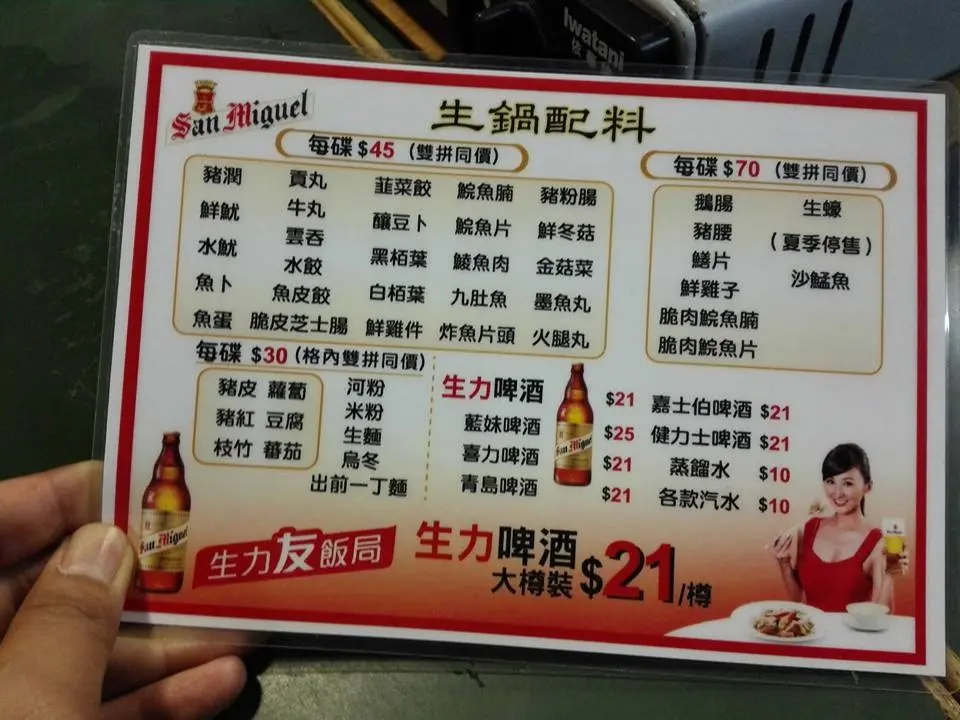 Iwatani
San Miguel
生鍋配料
每碟 $45 (雙拼同價)
豬潤 貢丸 韮菜餃 鯇魚腩 豬粉腸
鮮魷 牛丸 釀豆卜 鯇魚片 鮮冬菇
水魷 雲吞 黑栢葉 鯪魚肉 金菇菜
魚卜 水餃 白栢葉 九肚魚 墨魚丸
魚蛋 魚皮餃 鮮雞件 炸魚片頭 火腿丸
脆皮芝士腸
每碟 $70 (雙拼同價)
鵝腸 生蠔
豬腰 (夏季停售)
鱔片 沙鯭魚
鮮雞子
脆肉鯇魚腩
脆肉鯇魚片
每碟 $30 (格內雙拼同價)
豬皮 蘿蔔 河粉
豬紅 豆腐 米粉
枝竹 蕃茄 生麵
烏冬
出前一丁麵
生力啤酒 $21 嘉士伯啤酒 $21
藍妹啤酒 $25 健力士啤酒 $21
喜力啤酒 $21 蒸餾水 $10
青島啤酒 $21 各款汽水 $10
San Miguel
San Miguel
生力友飯局
生力啤酒
大樽裝 $21/樽